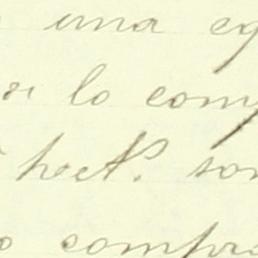 una eq
si lo comp
hect.s son
o compra